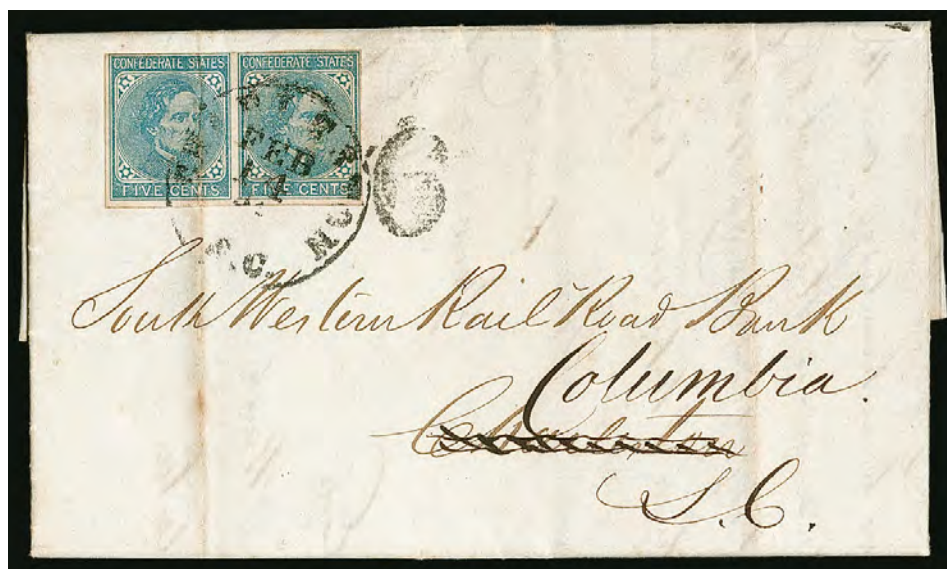 CONFEDERATE STATES CONFEDERATE STATES
FIVE CENTS FIVE CENTS
FEB
14
S.C.
6
South Western Rail Road Bank
Columbia.
Charleston
S.C.